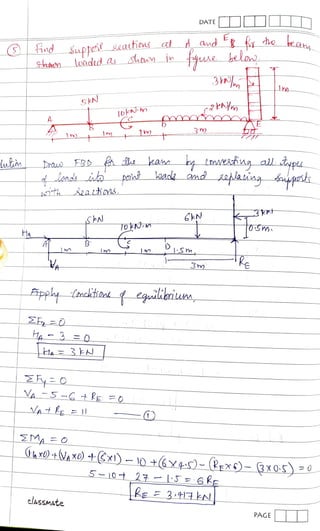 DATE
⑤ Find Support reactions at A and E for the beam
shown loaded as shown in figure below.
3 kN/m
1m
5kN
10kN.m
2kN/m
A
B
C
D
E
1m
1m
1m
3m
Draw FBD for the beam by converting all types
of loads into point loads and replacing supports
with reactions.
3kN
5kN
6kN
10kN.m
0.5m.
HA
A
B
C
D
1m
1m
1m
1.5m.
VA
3m
RE
Apply Conditions of equilibrium,
ΣFx = 0
HA - 3 = 0
HA = 3 kN
ΣFy = 0
VA - 5 - 6 + RE = 0
VA + RE = 11 —— ①
ΣMA = 0
(HA×0)+(VA×0)+(5×1) - 10 +(6×4.5) - (RE×6) - (3×0.5) = 0
5 - 10 + 27 - 1.5 = 6RE
RE = 3.417 kN
classmate
PAGE